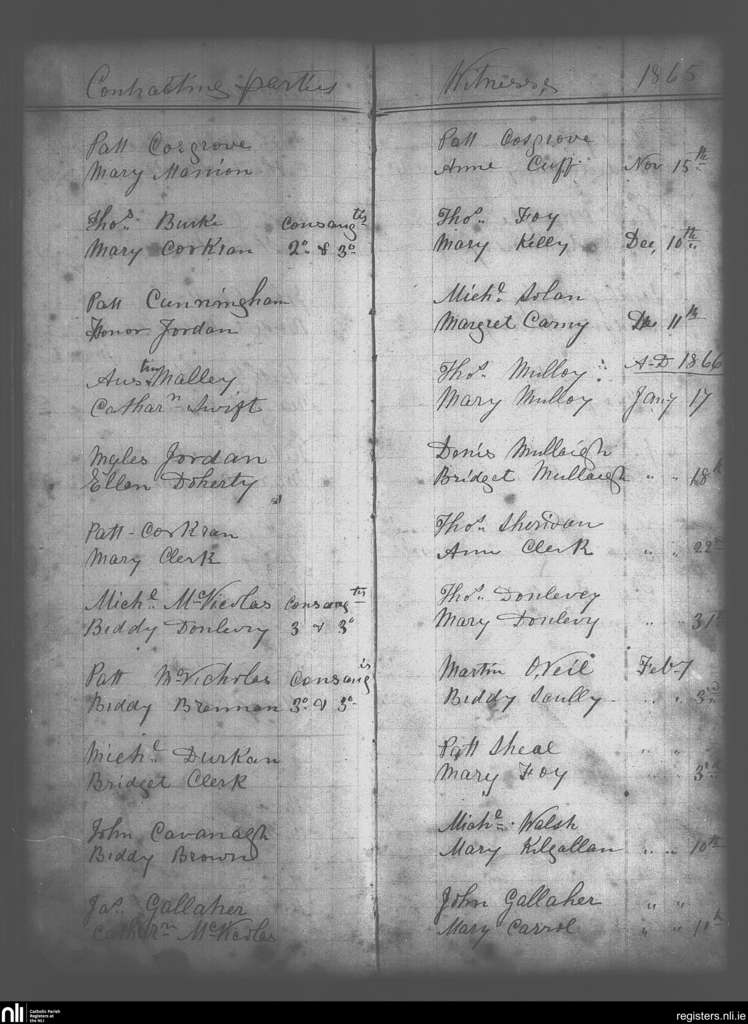 Contracting parties Witnesses 1865
Patt Cosgrove Patt Cosgrove
Mary Manion Anne Cuff Nov 15th
Thos. Burke Consangtis Thos. Foy
Mary Corkran 2o & 3o Mary Kelly Dec, 10th
Patt Cunningham Michl Solan
Honor Jordan Margret Carny Dec 11th
Austin Malley Thos. Mulloy A-D 1866
Catharn Swift Mary Mulloy Jany 17
Myles Jordan Denis Mullaigh
Ellen Doherty Bridget Mullaigh " " 18th
Patt-Corkran Thos. Sheridan
Mary Clerk Ann Clerk " " 22nd
Michl. McNicolas Consangtis Thos. Donlevey
Biddy Donlevry 3 & 3o Mary Donlevy " " 31st
Patt McNicholas Consangis Martin O,Neil Feb-7
Biddy Brennan 3o & 3o Biddy Scully " " 3rd
Michl Durkan Patt Sheal " "
Bridget Clerk Mary Foy 3rd
John Cavanagh Michl. Walsh
Biddy Brown Mary Kilgallan " " 10th
Jas. Gallaher John Gallaher " "
Catharn Mary Carrol " " 11th
nli Catholic Parish
Registers at
the NLI
registers.nli.ie